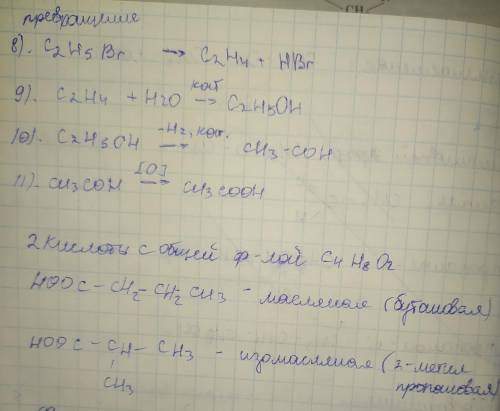 превращение
8). C2H5Br → C2H4 + HBr
9). C2H4 + H2O кат→ C2H5OH
10). C2H5OH –H2, кат.→ CH3–COH
11). CH3COH [O]→ CH3COOH
2 кислоты с общей ф-лой C4H8O2
HOOC – CH2 – CH2 CH3 – масляная (бутановая)
HOOC – CH – CH3 – изомасляная (2-метил
CH3 пропановая)